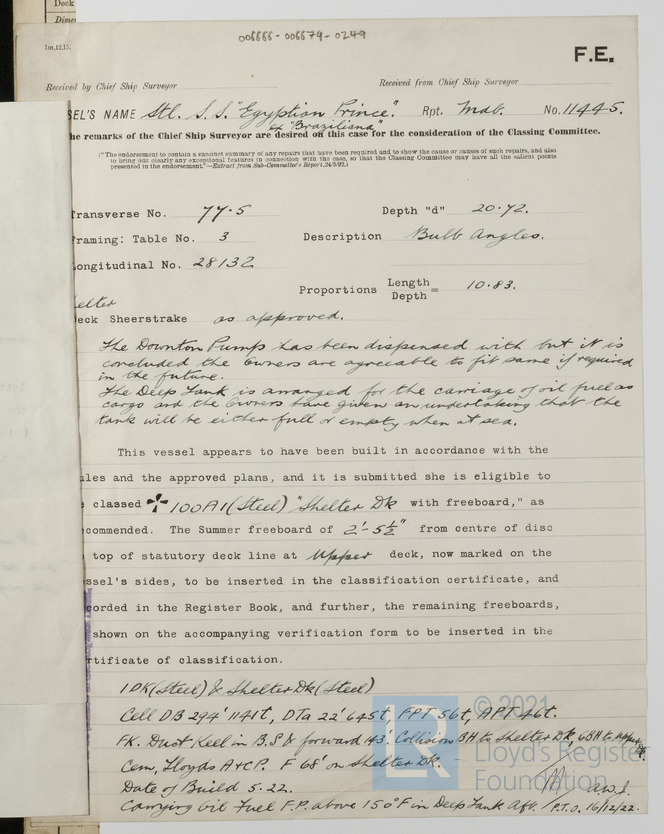 Deck
Dime
006666-006674-0249
1m,12,15.
F.E.
Received by Chief Ship Surveyor
Received from Chief Ship Surveyor
SEL'S NAME Stl. S.S. "Egyptian Prince". Rpt. Mdb. No. 11445.
ex "Braziliana"
he remarks of the Chief Ship Surveyor are desired on this case for the consideration of the Classing Committee.
("The endorsement to contain a succinct summary of any repairs that have been required and to show the cause or causes of such repairs, and also
to bring out clearly any exceptional features in connection with the case, so that the Classing Committee may have all the salient points
presented in the endorsement."—Extract from Sub-Committee's Report, 24/5/92.)
Transverse No. 77.5 Depth "d" 20.72.
Framing: Table No. 3 Description Bulb Angles.
Longitudinal No. 28132
Proportions Length/Depth = 10.83.
elter
Deck Sheerstrake as approved.
The Downton Pump has been dispensed with but it is
concluded the Owners are agreeable to fit same if required
in the future.
The Deep Tank is arranged for the carriage of oil fuel as
cargo and the Owners have given an undertaking that the
tank will be either full or empty when at sea.
This vessel appears to have been built in accordance with the
les and the approved plans, and it is submitted she is eligible to
classed ✠ 100A1 (Steel) "Shelter Dk with freeboard," as
commended. The Summer freeboard of 2'-5½" from centre of disc
top of statutory deck line at Upper deck, now marked on the
ssel's sides, to be inserted in the classification certificate, and
corded in the Register Book, and further, the remaining freeboards,
shown on the accompanying verification form to be inserted in the
rtificate of classification.
1 DK (Steel) & Shelter Dk (Steel)
Cell DB 294' 1141t, DTa 22' 645t, FPT 56t, APT 46t.
FK. Duct Keel in B.S & forward 143'. Collision BH to Shelter Dk, 6BH to Upper Dk
Cem, Lloyds A&CP. F 68' on Shelter Dk.
Date of Build 5.22.
Carrying Oil Fuel F.P. above 150°F in Deep Tank Aft. P.T.O. 16/12/22.
© 2021
LR
Lloyd's Register
Foundation